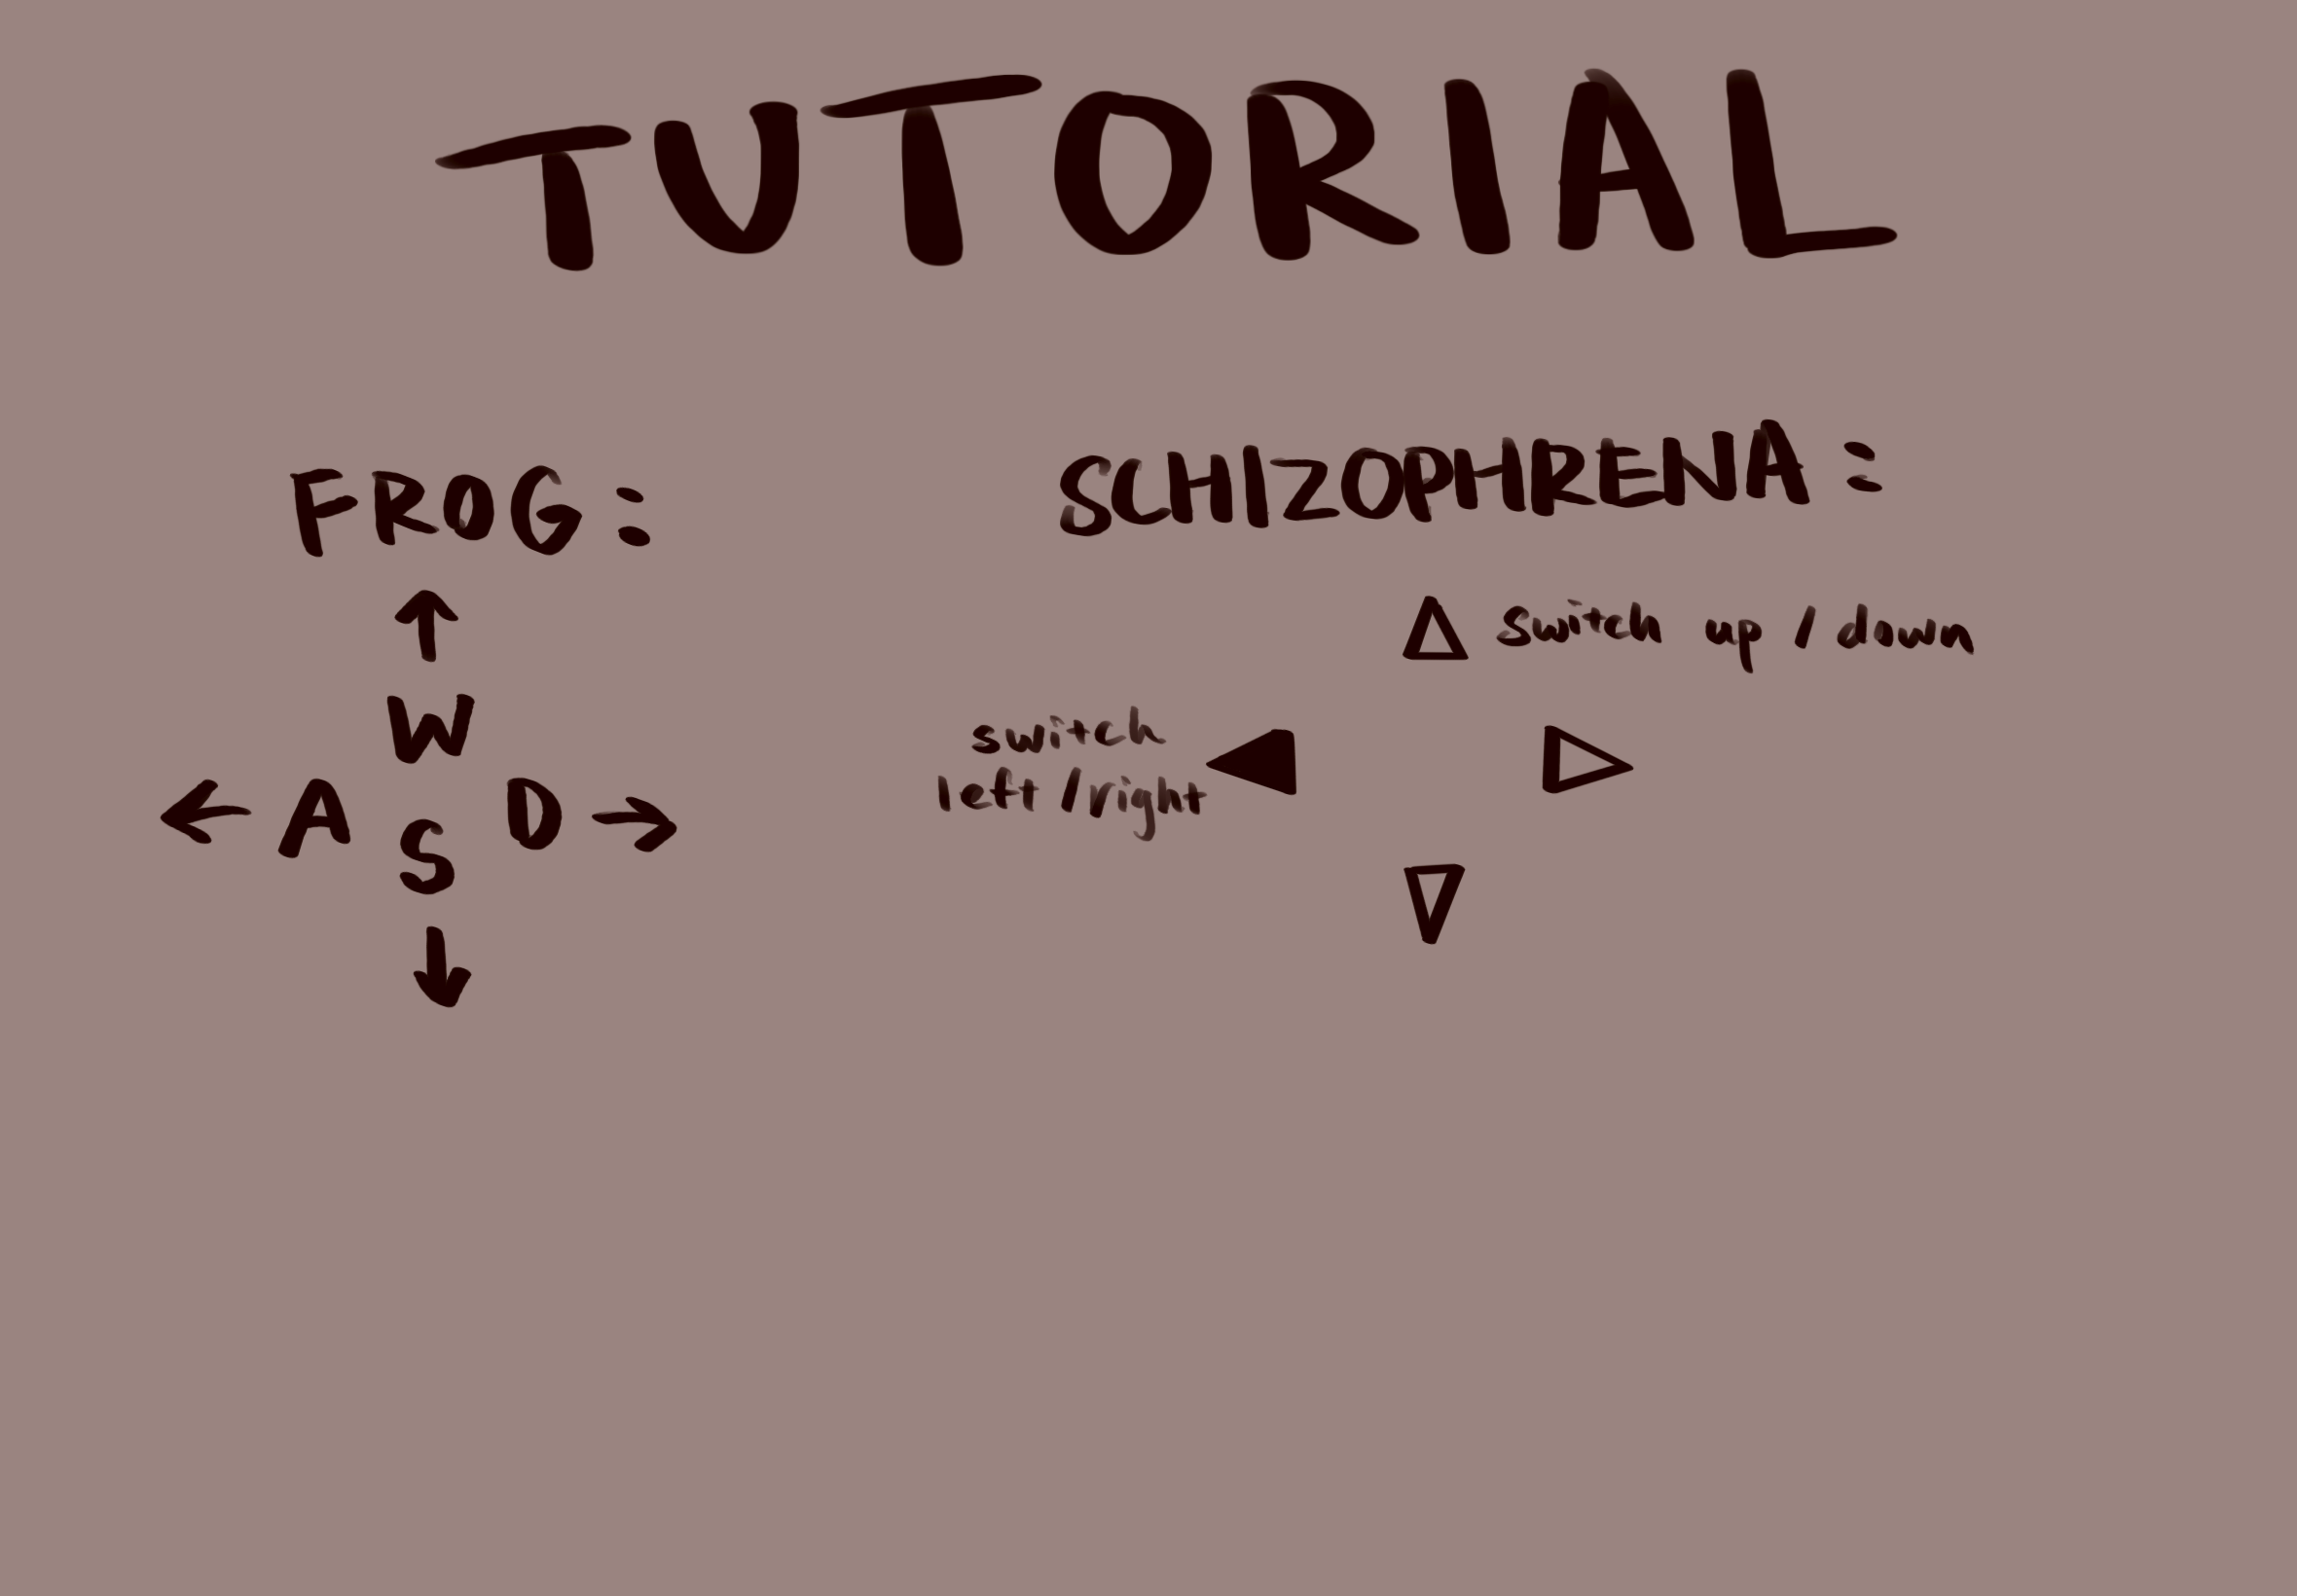 TUTORIAL
FROG:
↑
W
← A D →
S
↓
SCHIZOPHRENA:
△ switch up / down
switch
left / right ◀ ▷
▽